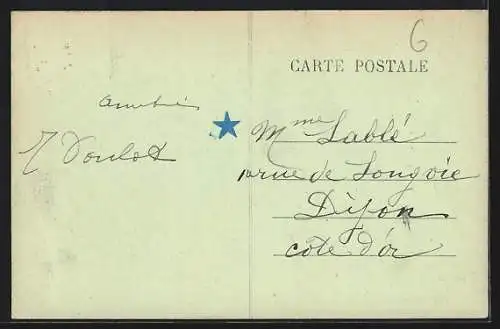 6
CARTE POSTALE
Amitiés
Mme Lablé
rue de Longvic
Dijon
côte d'or